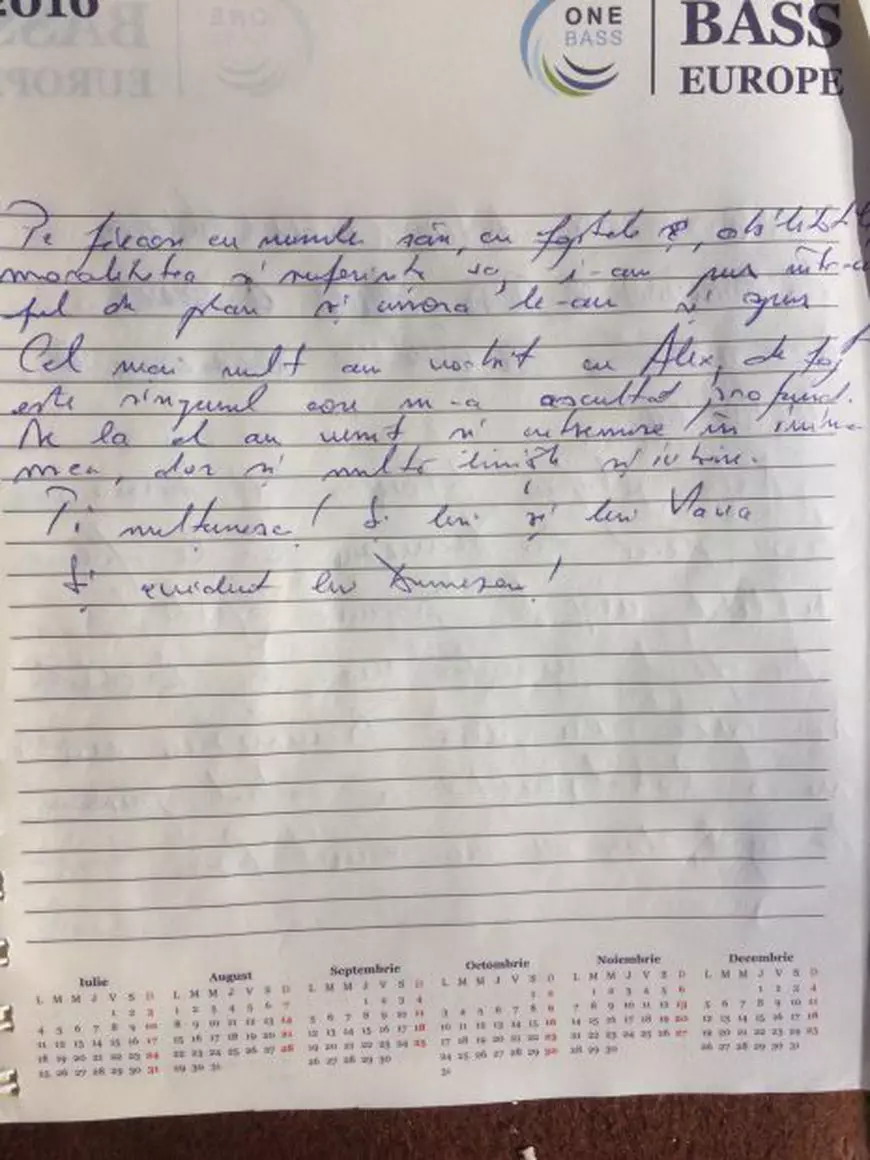 2016
ONE
BASS
BASS
EUROPE
Pe fiecare cu numele său, cu faptele
moralitatea și suferința sa, i-am pus într-un
fel de plan și unora le-am și spus
Cel mai mult am vorbit cu Alex, de fapt
este singurul care m-a ascultat profund.
De la el au venit și cutremure în inima
mea, dar și multă liniște și iubire.
Ți multumesc! Și lui și lui Maria
Și evident lui Dumnezeu!
Iulie August Septembrie Octombrie Noiembrie Decembrie
L M M J V S D L M M J V S D L M M J V S D L M M J V S D L M M J V S D L M M J V S D
1 2 3 1 2 3 4 5 6 7 1 2 3 4 1 2 1 2 3 4 5 6 1 2 3 4
4 5 6 7 8 9 10 8 9 10 11 12 13 14 5 6 7 8 9 10 11 3 4 5 6 7 8 9 7 8 9 10 11 12 13 5 6 7 8 9 10 11
11 12 13 14 15 16 17 15 16 17 18 19 20 21 12 13 14 15 16 17 18 10 11 12 13 14 15 16 14 15 16 17 18 19 20 12 13 14 15 16 17 18
18 19 20 21 22 23 24 22 23 24 25 26 27 28 19 20 21 22 23 24 25 17 18 19 20 21 22 23 21 22 23 24 25 26 27 19 20 21 22 23 24 25
25 26 27 28 29 30 31 29 30 31 26 27 28 29 30 24 25 26 27 28 29 30 28 29 30 26 27 28 29 30 31
31